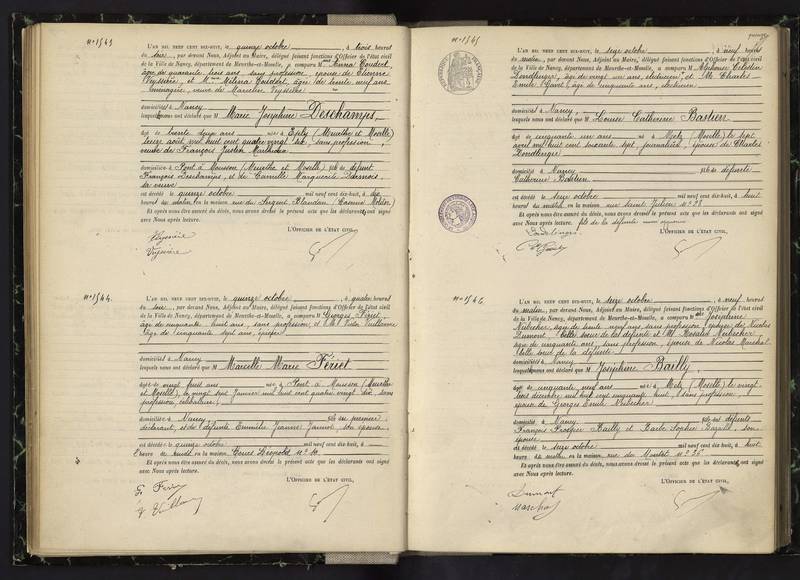 N° 1543
L'AN MIL NEUF CENT DIX-HUIT, le quinze octobre, à trois heures
du soir, par devant Nous, Adjoint au Maire, délégué faisant fonctions d'Officier de l'état civil
de la Ville de Nancy, département de Meurthe-et-Moselle, a comparu Mme Anna
âgée de quarante trois ans, sans profession, épouse de Etienne
et Mme âgée de trente neuf ans
veuve de
domiciliés à Nancy
lesquels nous ont déclaré que M Marie Joséphine Deschamps,
âgée de trente deux ans née à (Meurthe et Moselle)
août mil huit cent quatre vingt six, sans profession,
veuve de François Justin
domiciliée à Pont à Mousson (Meurthe et Moselle) fille de défunt
François Deschamps, et de Camille Marguerite
sa veuve
est décédée le quinze octobre mil neuf cent dix-huit, à dix
heures du matin en la maison rue du Sergent Blandan (Caserne Molitor)
Et après nous être assuré du décès, nous avons dressé le présent acte que les déclarants ont signé
avec Nous après lecture.
L'OFFICIER DE L'ÉTAT CIVIL,
N° 1544.
L'AN MIL NEUF CENT DIX-HUIT, le quinze octobre, à quatre heures
du soir, par devant Nous, Adjoint au Maire, délégué faisant fonctions d'Officier de l'état civil
de la Ville de Nancy, département de Meurthe-et-Moselle, a comparu M Georges Fériet,
âgé de cinquante huit ans, sans profession, et M Victor Vuillaume
âgé de cinquante sept ans,
domiciliés à Nancy
lesquels nous ont déclaré que M Marcelle Marie Fériet
âgée de vingt huit ans née à Pont à Mousson (Meurthe
et Moselle), le vingt sept Janvier mil huit cent quatre vingt dix, sans
profession, célibataire
domiciliée à Nancy, fille du premier
déclarant, et de défunte Emmélie Jeanne Jeannot, son épouse.
est décédée le quinze octobre mil neuf cent dix-huit, à
heure de midi en la maison Cours Léopold N° 10
Et après nous être assuré du décès, nous avons dressé le présent acte que les déclarants ont signé
avec Nous après lecture.
L'OFFICIER DE L'ÉTAT CIVIL,
N° 1545
L'AN MIL NEUF CENT DIX-HUIT, le seize octobre, à neuf heures
du matin, par devant Nous, Adjoint au Maire, délégué faisant fonctions d'Officier de l'état civil
de la Ville de Nancy, département de Meurthe-et-Moselle, a comparu M Alphonse Célestin
âgé de vingt un ans, électricien, et M Charles
Emile âgé de cinquante un ans, électricien
domiciliés à Nancy,
lesquels nous ont déclaré que M Louise Catherine Bastien
âgée de cinquante un ans née à Metz (Moselle) le sept
avril mil huit cent soixante sept, journalière, épouse de Charles
domiciliée à Nancy fille de défunte
Catherine Bastien
est décédée le seize octobre mil neuf cent dix-huit, à huit
heures du matin en la maison rue Saint Julien N° 28
Et après nous être assuré du décès, nous avons dressé le présent acte que les déclarants ont signé
avec Nous après lecture. fils de la défunte
L'OFFICIER DE L'ÉTAT CIVIL,
N° 1546
L'AN MIL NEUF CENT DIX-HUIT, le seize octobre, à neuf heures
du matin, par devant Nous, Adjoint au Maire, délégué faisant fonctions d'Officier de l'état civil
de la Ville de Nancy, département de Meurthe-et-Moselle, a comparu Mme Joséphine
âgée de trente neuf ans, sans profession, épouse de Nicolas
Dumont, belle sœur de la défunte et M Rosalie
âgée de cinquante ans, sans profession, épouse de Nicolas Marchal
belle sœur de la défunte
domiciliés à Nancy
lesquels nous ont déclaré que M Joséphine Bailly
âgée de cinquante neuf ans née à Metz (Moselle) le vingt
trois décembre mil huit cent cinquante huit, sans profession,
épouse de Georges Emile
domiciliée à Nancy fille des défunts
François Prosper Bailly et Barbe Sophie son
épouse
est décédée le seize octobre mil neuf cent dix-huit, à huit
heures du matin en la maison rue de N° 26
Et après nous être assuré du décès, nous avons dressé le présent acte que les déclarants ont signé
avec Nous après lecture.
L'OFFICIER DE L'ÉTAT CIVIL,
Dumont
Marchal